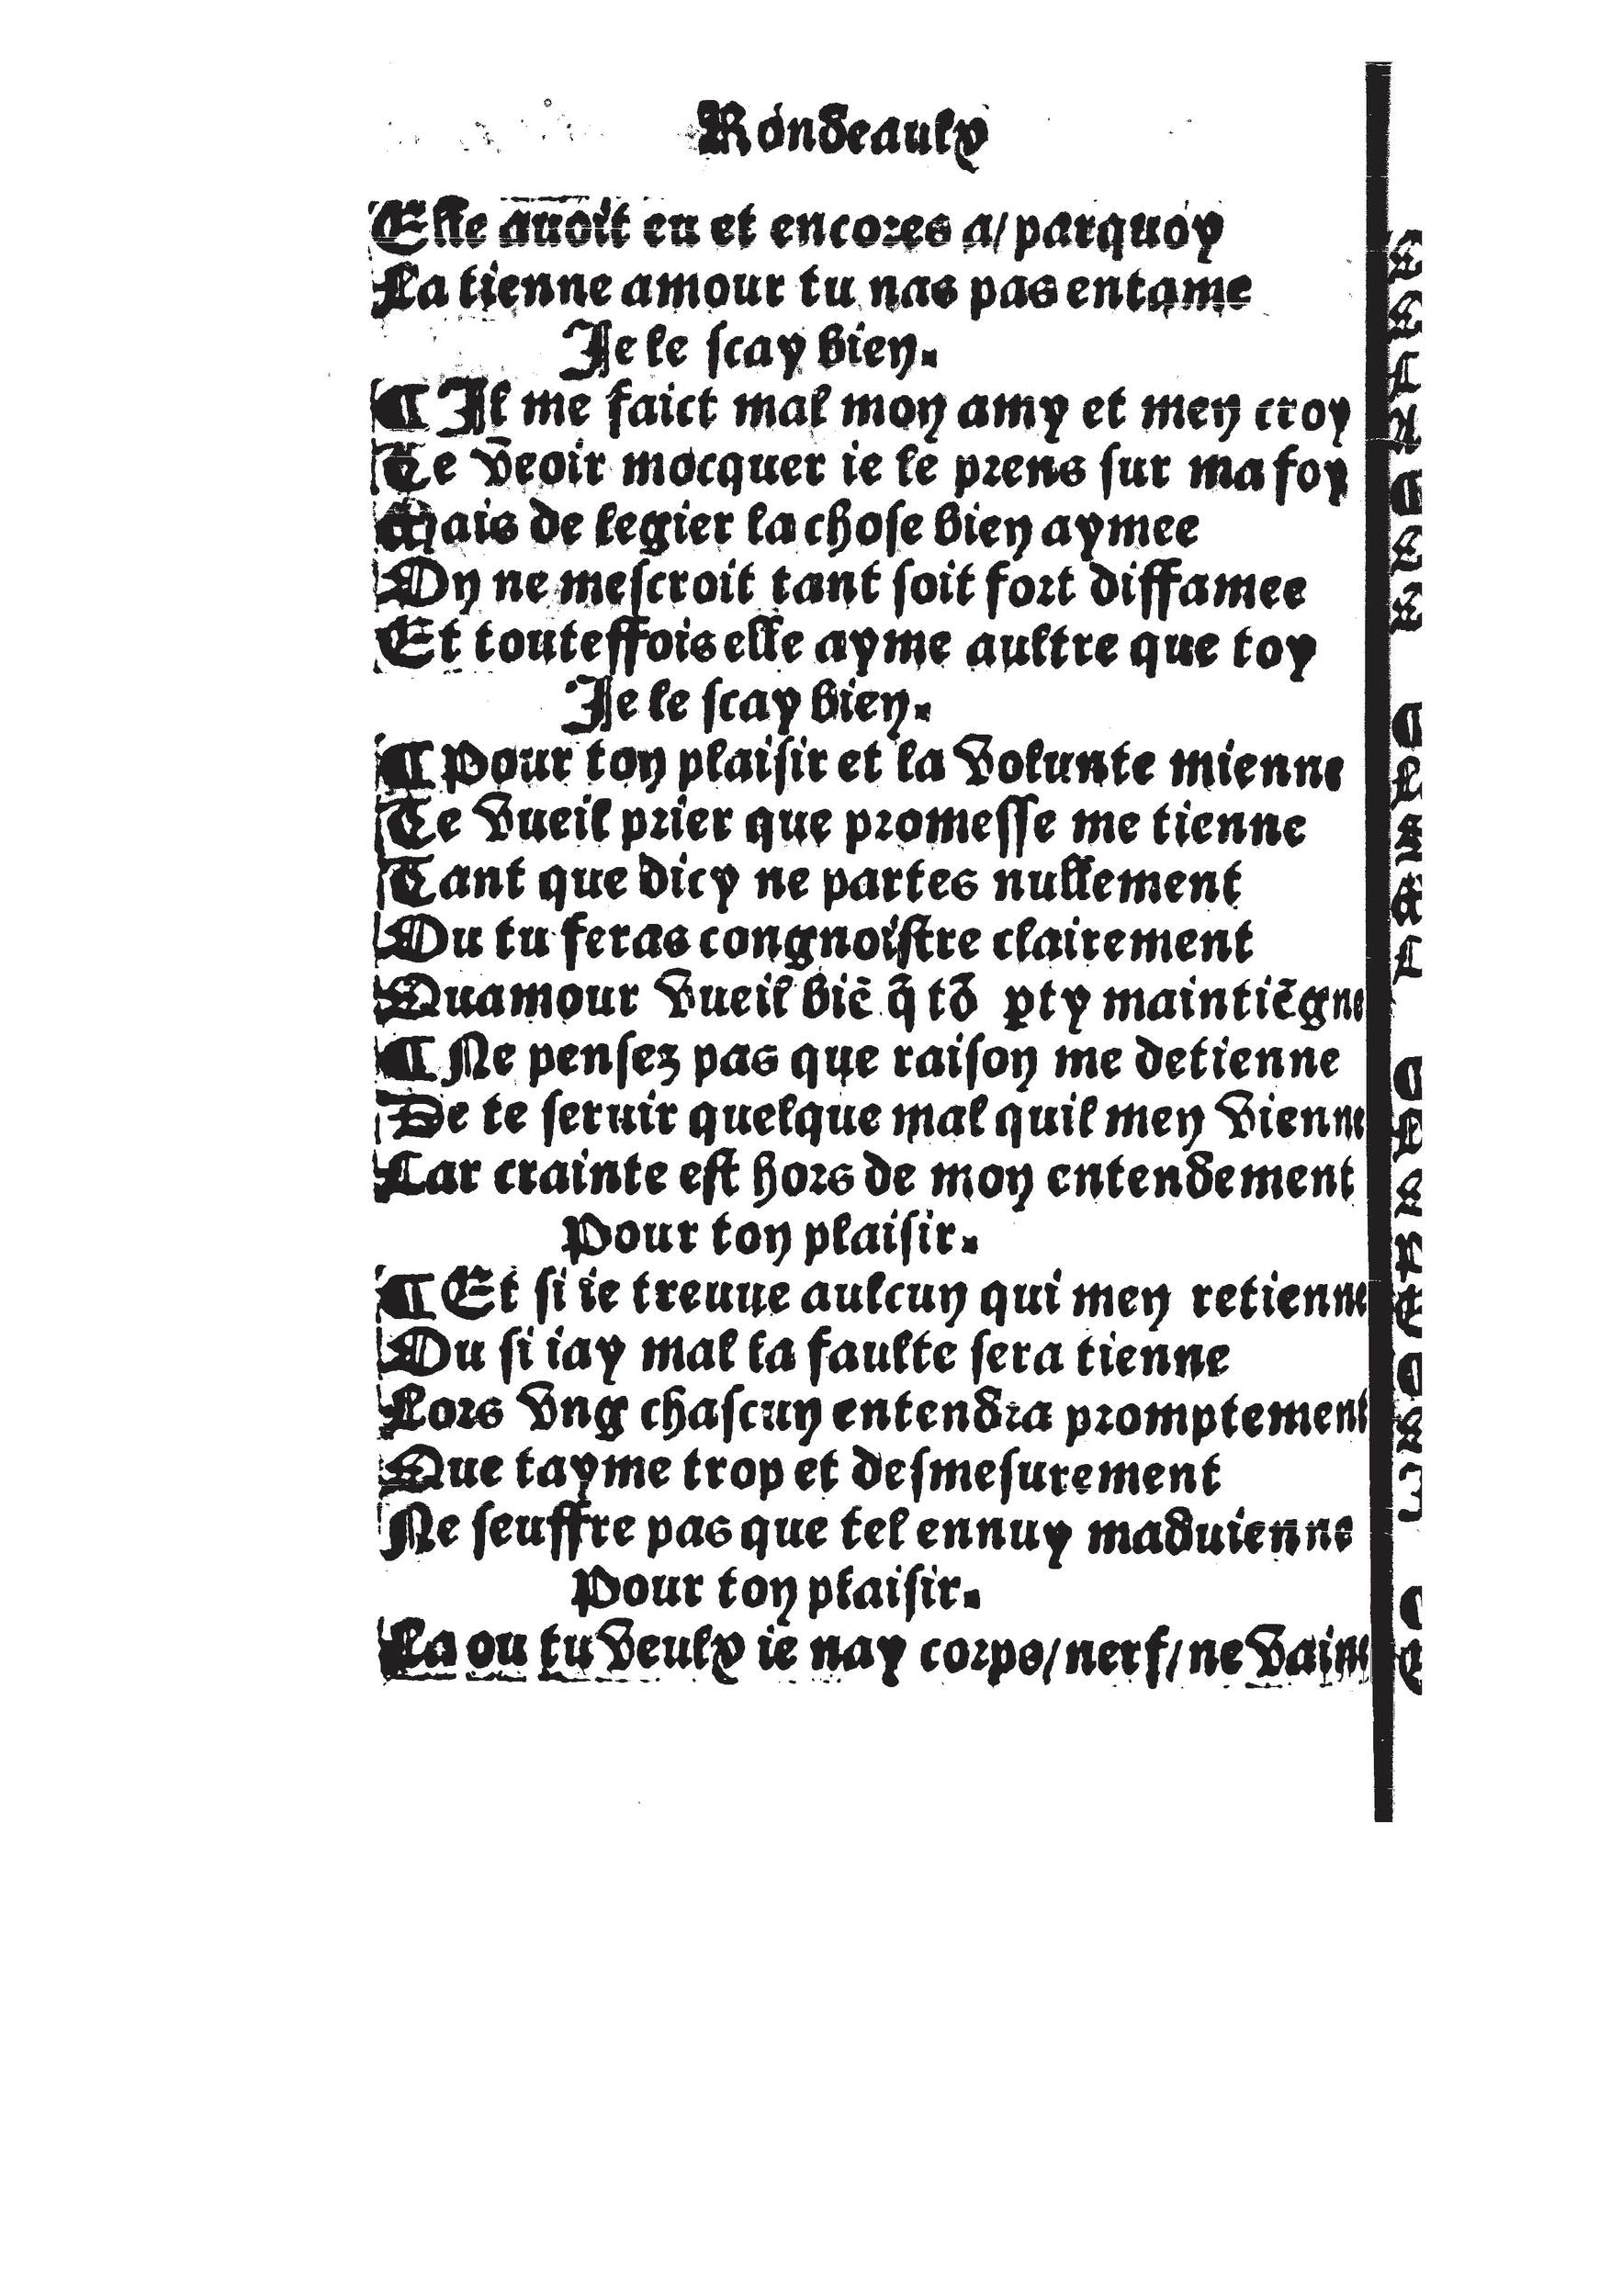 Rondeaulx
Elle auoit eu et encores a/ parquoy
La tienne amour tu nas pas entame
Je le scay bien.
¶ Il me faict mal mon amy et men croy
Te veoir mocquer ie le prens sur ma foy
Mais de legier la chose bien aymee
On ne mescroit tant soit fort diffamee
Et touteffois elle ayme aultre que toy
Je le scay bien.
¶ Pour ton plaisir et la volunte mienne
Te vueil prier que promesse me tienne
Tant que dicy ne partes nullement
Ou tu feras congnoistre clairement
Quamour vueil biē q̄ tō ꝑty maintiēgne
¶ Ne pensez pas que raison me detienne
De te seruir quelque mal quil men vienne
Car crainte est hors de mon entendement
Pour ton plaisir.
¶ Et si ie treuue aulcun qui men retienne
Ou si iay mal la faulte sera tienne
Lors vng chascun entendra promptement
Que tayme trop et desmesurement
Ne seuffre pas que tel ennuy maduienne
Pour ton plaisir.
La ou tu veulx ie nay corps/ nerf/ ne vaine